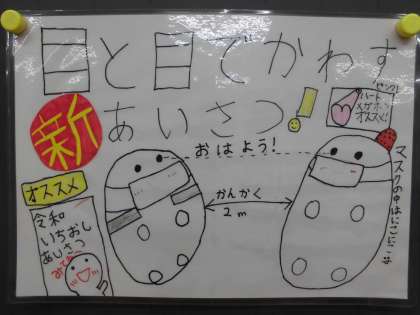 目と目でかわす
新あいさつ!
ピンク!
ハート
メガホン
オススメ!
おはよう!
かんかく
2m
マスクの中はにこにこ
オススメ
令和
いちおし
あいさつ
みてね